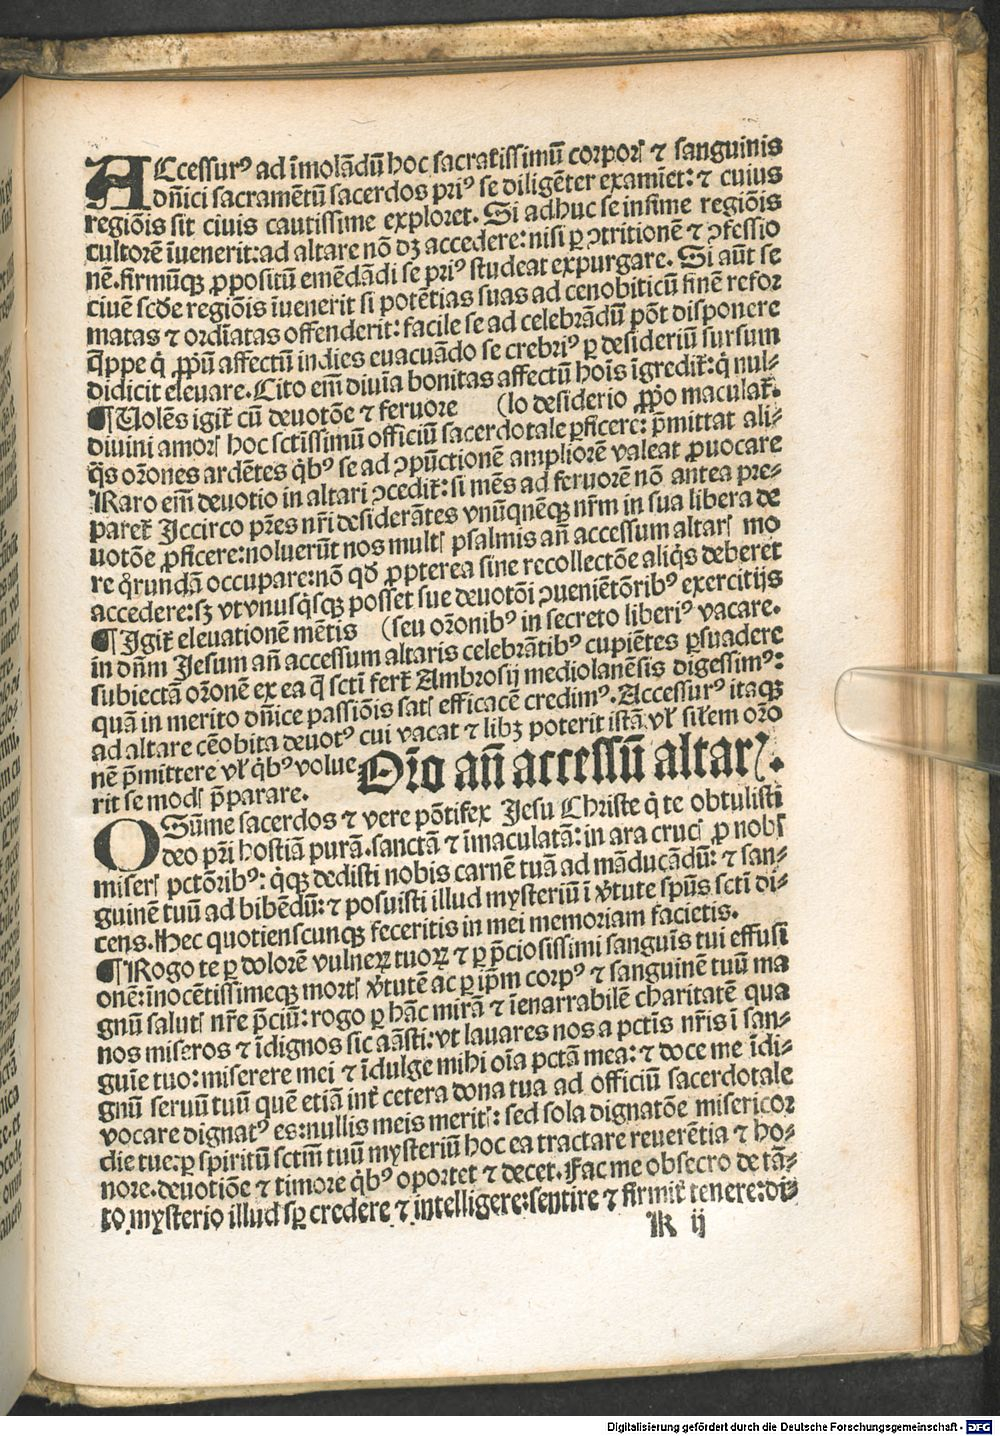 ACcessurꝰ ad īmolādū hoc sacratissimū corporꝭ ⁊ sanguinis
dn̄ici sacramētū sacerdos priꝰ se diligēter examīet: ⁊ cuius
regiōis sit ciuis cautissime exploret. Si adhuc se infime regiōis
cultorē īuenerit: ad altare nō dꝫ accedere: nisi ꝑ ꝯtritionē ⁊ ꝯfessio
nē. firmūqꝫ ꝓpositū emēdādi se priꝰ studeat expurgare. Si aūt se
ciuē scd̄e regiōis īuenerit si potētias suas ad cenobiticū finē refor
matas ⁊ ordīatas offenderit: facile se ad celebrādū pōt disponere
q̄ppe q̇ ꝓpriū affectū indies euacuādo se crebriꝰ ꝑ desideriū sursum
didicit eleuare. Cito em̄ diuīa bonitas affectū hoīs īgredit᷑: q̇ nul-
¶ Uolēs igit᷑ cū deuotōe ⁊ feruore (lo desiderio ꝓprio maculat᷑.
diuini amorꝭ hoc sctīssimū officiū sacerdotale ꝑficere: p̄mittat ali-
q̄s orōnes ardētes q̇bꝰ se ad ꝯpūctionē ampliorē valeat ꝓuocare
Raro em̄ deuotio in altari ꝯcedit᷑: si mēs ad feruorē nō antea pre-
paret᷑ Jccirco pr̄es nr̄i desiderātes vnūqnēqꝫ nr̄m in sua libera de
uotōe ꝓficere: noluerūt nos multꝭ psalmis an̄ accessum altarꝭ mo
re q̊rundā occupare: nō qd̄ ꝓpterea sine recollectōe aliq̇s deberet
accedere: sꝫ vt vnusq̇sqꝫ posset sue deuotōi ꝯueniētōribꝰ exercitijs
¶ Jgit᷑ eleuationē mētis (seu orōnibꝰ in secreto liberiꝰ vacare.
in dn̄m Jesum an̄ accessum altaris celebrātibꝰ cupiētes ꝑsuadere
subiectā orōnē ex ea q̄ scti fert᷑ Ambrosij mediolanēsis digessimꝰ:
quā in merito dn̄ice passiōis satꝭ efficacē credimꝰ. Accessurꝰ itaqꝫ
ad altare cēobita deuotꝰ cui vacat ⁊ libꝫ poterit istā vl̓ sil̓em orō
nē p̄mittere vl̓ q̇bꝰ volue
rit se modꝭ p̄parare.
Orō an̄ accessū altarꝭ.
O Sūme sacerdos ⁊ vere pōtifex Jesu Christe q̇ te obtulisti
deo pr̄i hostiā purā. sanctā ⁊ īmaculatā: in ara crucꝭ ꝓ nobꝭ
miserꝭ pctōribꝰ: q̇qꝫ dedisti nobis carnē tuā ad māducādū: ⁊ san-
guinē tuū ad bibēdū: ⁊ posuisti illud mysteriū ī v̓tute spūs scti di-
cens. Hec quotienscunqꝫ feceritis in mei memoriam facietis.
¶ Rogo te ꝑ dolorē vulneꝝ tuoꝝ ⁊ ꝑ p̄ciosissimi sanguīs tui effusi
onē: īnocētissimeqꝫ mortꝭ v̓tutē ac ꝑ ip̄m corpꝰ ⁊ sanguinē tuū ma
gnū salutꝭ nr̄e p̄ciū: rogo ꝑ hāc mirā ⁊ īenarrabilē charitatē qua
nos miseros ⁊ īdignos sic amāsti: vt lauares nos a pctīs nr̄is ī san-
guīe tuo: miserere mei ⁊ īdulge mihi oīa pctā mea: ⁊ doce me īdi-
gnū seruū tuū quē etiā int᷑ cetera dona tua ad officiū sacerdotale
vocare dignatꝰ es: nullis meis meritꝭ: sed sola dignatōe misericor
die tue: ꝑ spiritū sctm̄ tuū mysteriū hoc ea tractare reuerētia ⁊ ho-
nore. deuotiōe ⁊ timore q̇bꝰ oportet ⁊ decet. Fac me obsecro de tā-
to mysterio illud sꝑ credere ⁊ intelligere: sentire ⁊ firmit᷑ tenere: di-
K ij
Digitalisierung gefördert durch die Deutsche Forschungsgemeinschaft - DFG